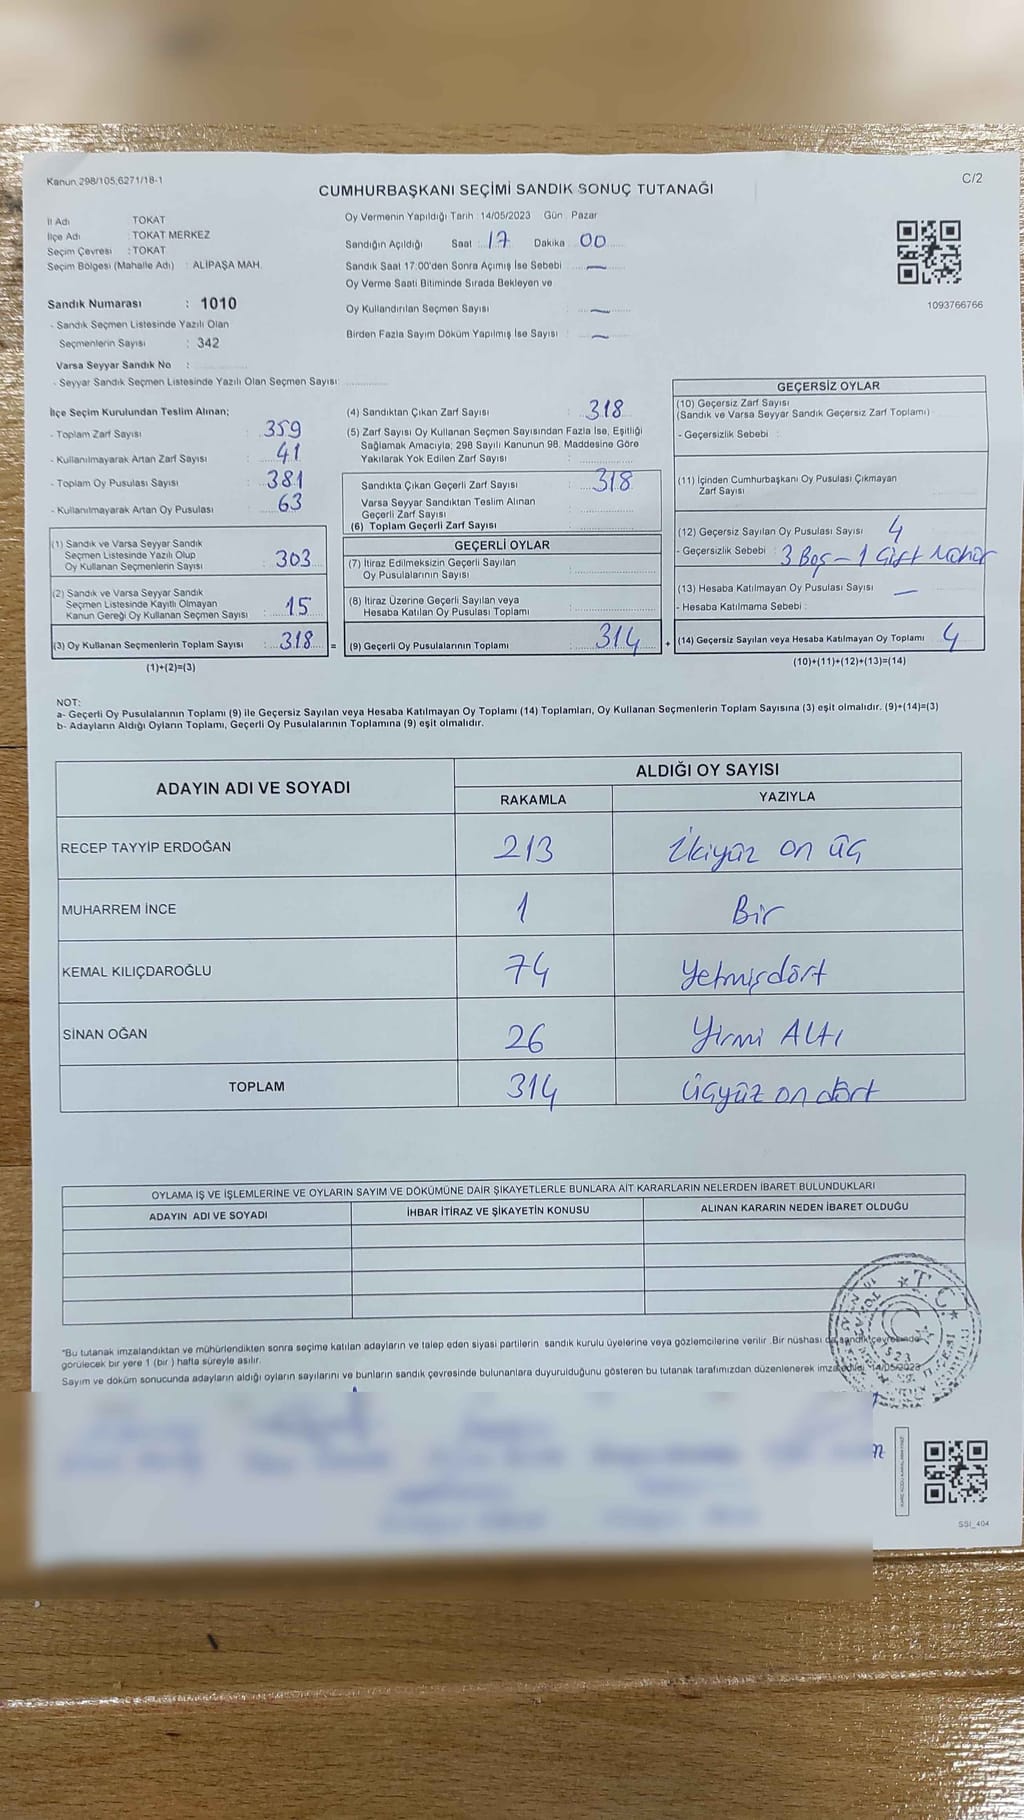 Kanun 298/105,6271/18-1
C/2
CUMHURBAŞKANI SEÇİMİ SANDIK SONUÇ TUTANAĞI
İl Adı TOKAT
İlçe Adı : TOKAT MERKEZ
Seçim Çevresi : TOKAT
Seçim Bölgesi (Mahalle Adı) : ALİPAŞA MAH.
Sandık Numarası : 1010
- Sandık Seçmen Listesinde Yazılı Olan
Seçmenlerin Sayısı : 342
Varsa Seyyar Sandık No :
- Seyyar Sandık Seçmen Listesinde Yazılı Olan Seçmen Sayısı:
Oy Vermenin Yapıldığı Tarih 14/05/2023 Gün: Pazar
Sandığın Açıldığı Saat : 17 Dakika 00
Sandık Saat 17:00'den Sonra Açımış İse Sebebi : —
Oy Verme Saati Bitiminde Sırada Bekleyen ve
Oy Kullandırılan Seçmen Sayısı : —
Birden Fazla Sayım Döküm Yapılmış İse Sayısı : —
1093766766
İlçe Seçim Kurulundan Teslim Alınan;
- Toplam Zarf Sayısı : 359
- Kullanılmayarak Artan Zarf Sayısı : 41
- Toplam Oy Pusulası Sayısı : 381
- Kullanılmayarak Artan Oy Pusulası : 63
(1) Sandık ve Varsa Seyyar Sandık
Seçmen Listesinde Yazılı Olup
Oy Kullanan Seçmenlerin Sayısı : 303
(2) Sandık ve Varsa Seyyar Sandık
Seçmen Listesinde Kayıtlı Olmayan
Kanun Gereği Oy Kullanan Seçmen Sayısı : 15
(3) Oy Kullanan Seçmenlerin Toplam Sayısı : 318 =
(1)+(2)=(3)
(4) Sandıktan Çıkan Zarf Sayısı : 318
(5) Zarf Sayısı Oy Kullanan Seçmen Sayısından Fazla İse, Eşitliği
Sağlamak Amacıyla; 298 Sayılı Kanunun 98. Maddesine Göre
Yakılarak Yok Edilen Zarf Sayısı :
Sandıkta Çıkan Geçerli Zarf Sayısı : 318
Varsa Seyyar Sandıktan Teslim Alınan
Geçerli Zarf Sayısı :
(6) Toplam Geçerli Zarf Sayısı :
GEÇERLİ OYLAR
(7) İtiraz Edilmeksizin Geçerli Sayılan
Oy Pusulalarının Sayısı :
(8) İtiraz Üzerine Geçerli Sayılan veya
Hesaba Katılan Oy Pusulası Toplamı :
(9) Geçerli Oy Pusulalarının Toplamı : 314 +
GEÇERSİZ OYLAR
(10) Geçersiz Zarf Sayısı
(Sandık ve Varsa Seyyar Sandık Geçersiz Zarf Toplamı) :
- Geçersizlik Sebebi :
(11) İçinden Cumhurbaşkanı Oy Pusulası Çıkmayan
Zarf Sayısı
(12) Geçersiz Sayılan Oy Pusulası Sayısı : 4
- Geçersizlik Sebebi : 3 Boş - 1 Çift Mühür
(13) Hesaba Katılmayan Oy Pusulası Sayısı : —
- Hesaba Katılmama Sebebi :
(14) Geçersiz Sayılan veya Hesaba Katılmayan Oy Toplamı 4
(10)+(11)+(12)+(13)=(14)
NOT:
a- Geçerli Oy Pusulalarının Toplamı (9) ile Geçersiz Sayılan veya Hesaba Katılmayan Oy Toplamı (14) Toplamları, Oy Kullanan Seçmenlerin Toplam Sayısına (3) eşit olmalıdır. (9)+(14)=(3)
b- Adayların Aldığı Oyların Toplamı, Geçerli Oy Pusulalarının Toplamına (9) eşit olmalıdır.
ADAYIN ADI VE SOYADI ALDIĞI OY SAYISI
RAKAMLA YAZIYLA
RECEP TAYYİP ERDOĞAN 213 İkiyüz on üç
MUHARREM İNCE 1 Bir
KEMAL KILIÇDAROĞLU 74 Yetmişdört
SİNAN OĞAN 26 Yirmi Altı
TOPLAM 314 Üçyüz on dört
OYLAMA İŞ VE İŞLEMLERİNE VE OYLARIN SAYIM VE DÖKÜMÜNE DAİR ŞİKAYETLERLE BUNLARA AİT KARARLARIN NELERDEN İBARET BULUNDUKLARI
ADAYIN ADI VE SOYADI İHBAR İTİRAZ VE ŞİKAYETİN KONUSU ALINAN KARARIN NEDEN İBARET OLDUĞU
"Bu tutanak imzalandıktan ve mühürlendikten sonra seçime katılan adayların ve talep eden siyasi partilerin sandık kurulu üyelerine veya gözlemcilerine verilir. Bir nüshası da sandık çevresinde
görülecek bir yere 1 (bir) hafta süreyle asılır.
Sayım ve döküm sonucunda adayların aldığı oyların sayılarını ve bunların sandık çevresinde bulunanlara duyurulduğunu gösteren bu tutanak tarafımızdan düzenlenerek 14/05/2023
T.C.
SSI_404